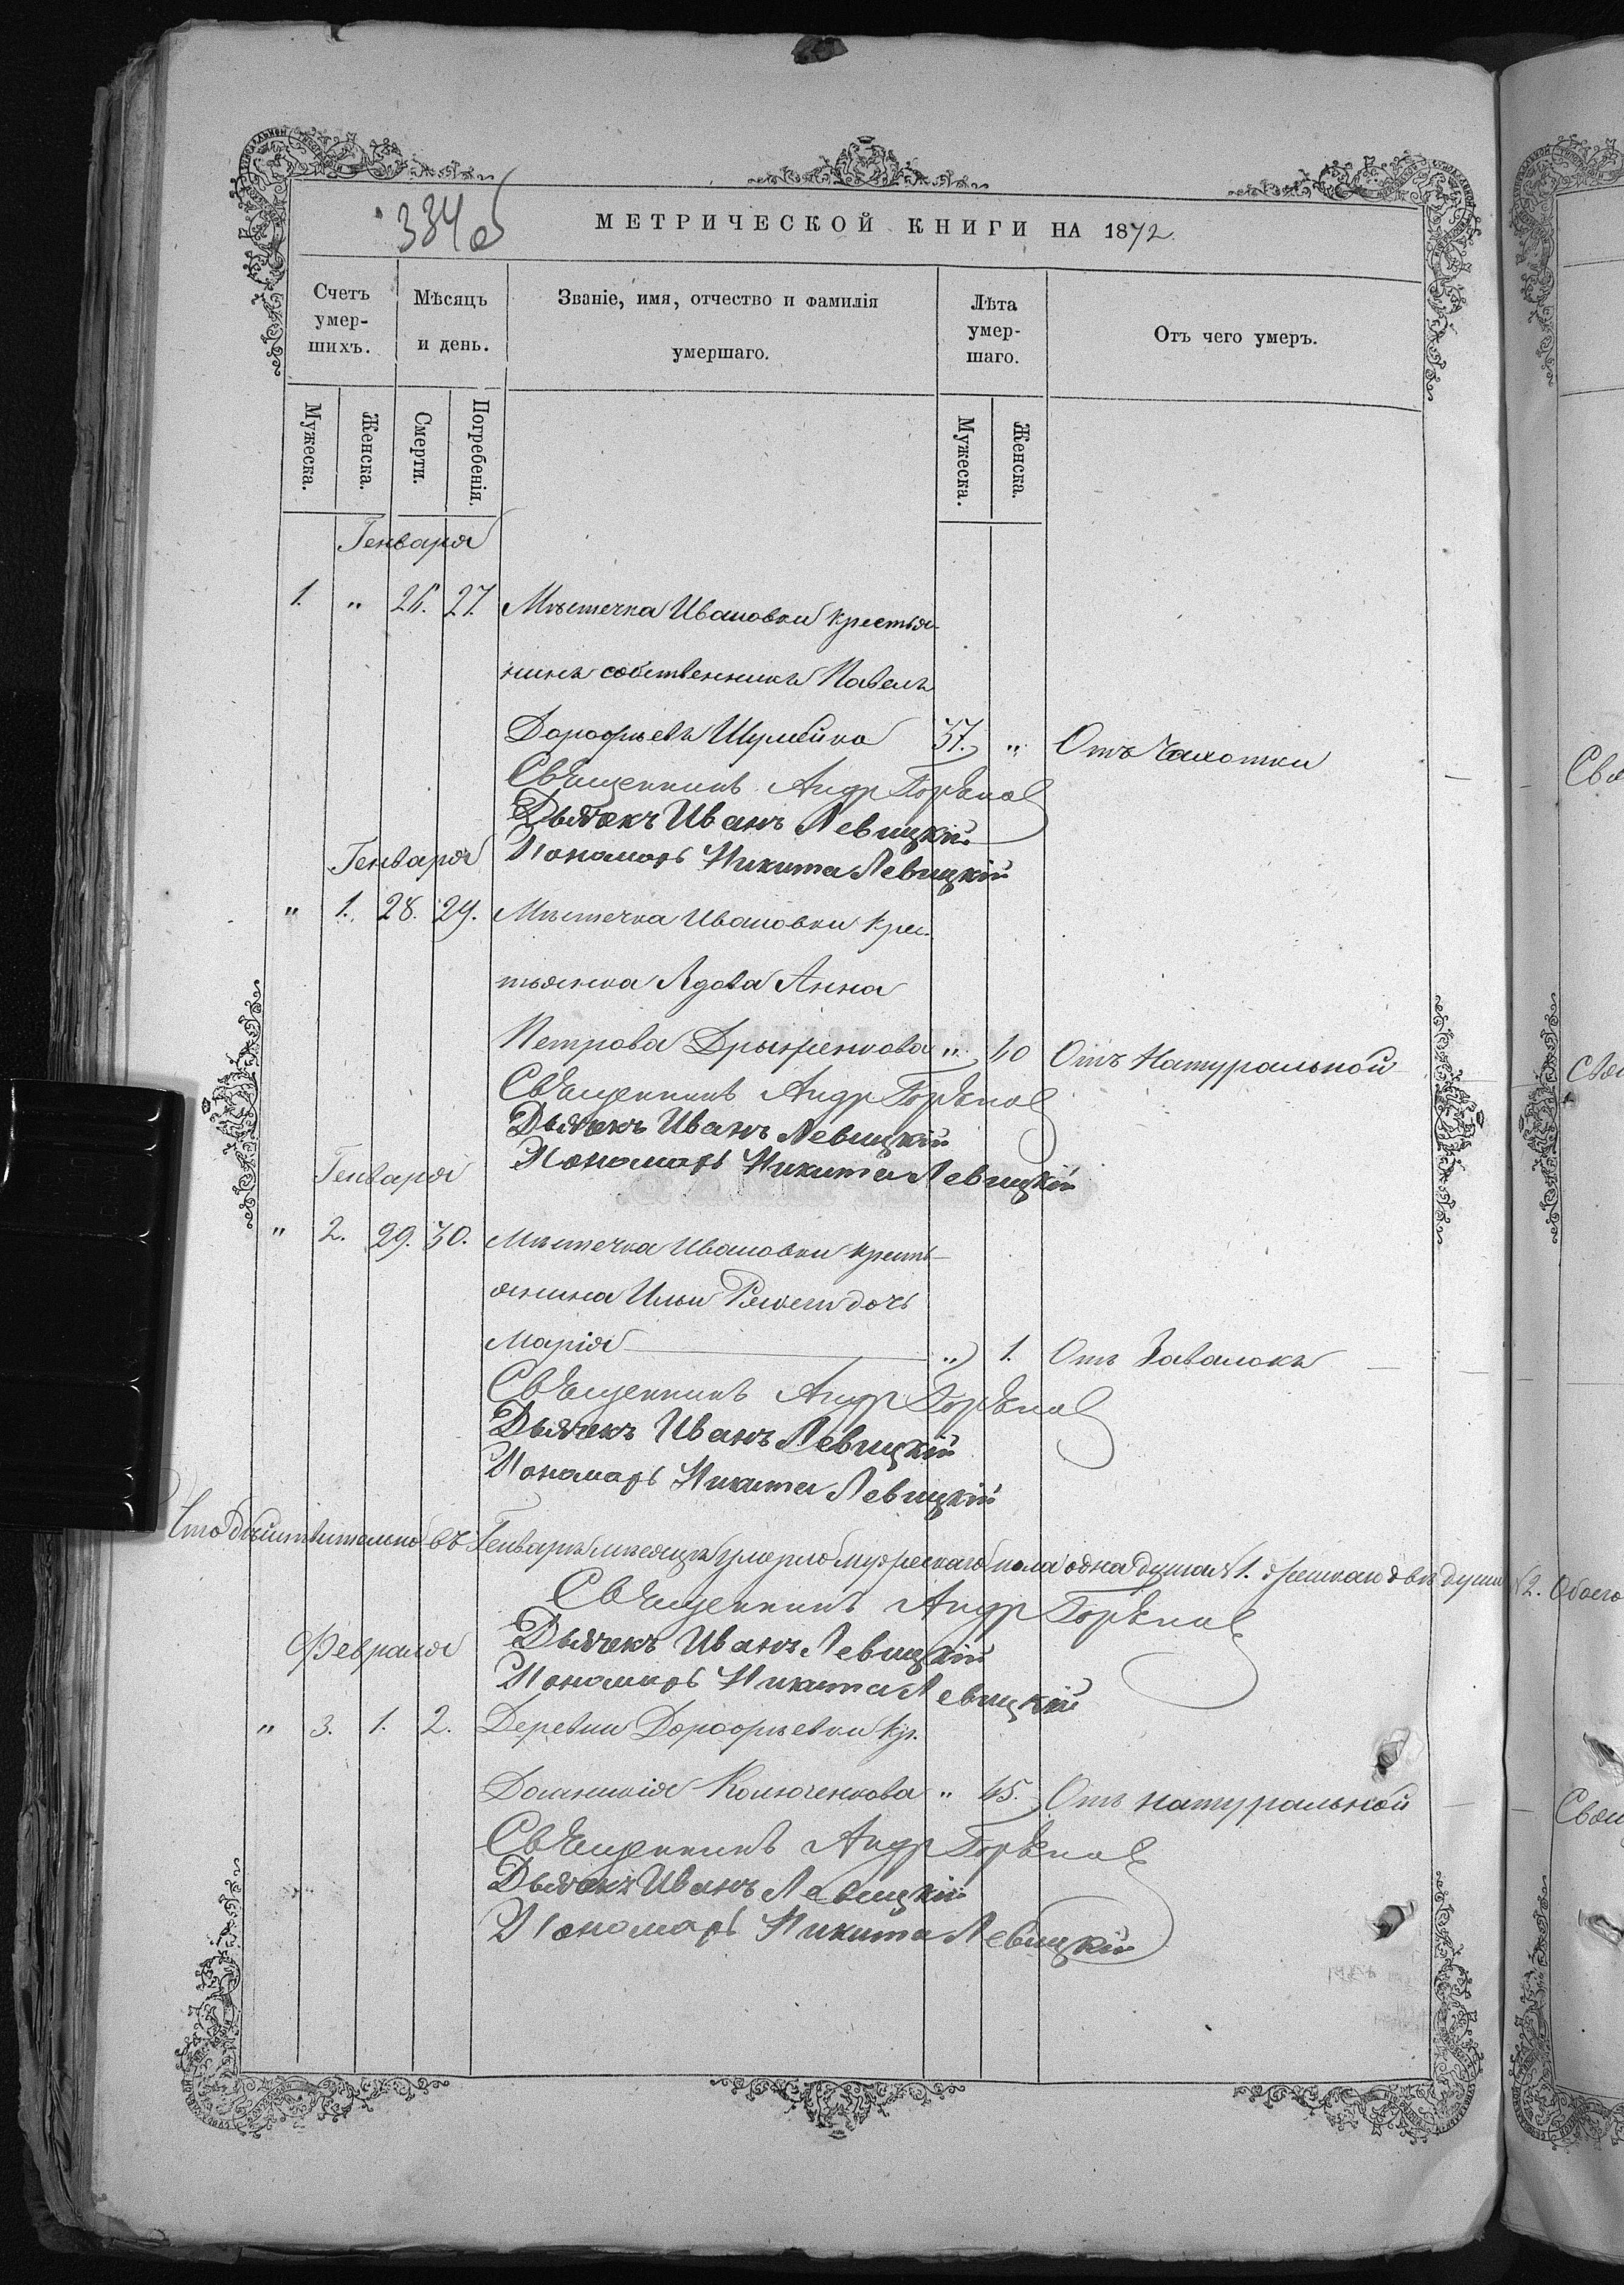 334об
МЕТРИЧЕСКОЙ КНИГИ НА 1872.
Счетъ умер-шихъ.
Мѣсяцъ и день.
Званіе, имя, отчество и фамилія умершаго.
Лѣта умер-шаго.
Отъ чего умеръ.
Мужеска.
Женска.
Смерти.
Погребенія.
Мужеска.
Женска.
Генваря
1. " 26. 27. Мѣстечка Ивановки крестья-
нинъ собственникъ Павелъ
Дорофѣевъ Шулейко 37. " Отъ Чахотки
Священникъ Андр
Дьячекъ Иванъ Левицкій
Пономарь Никита Левицкій
Генваря
" 1. 28. 29. Мѣстечка Ивановки крес-
тьянка Вдова Анна
Петрова " 40 Отъ Натуральной
Священникъ Андр
Дьячекъ Иванъ Левицкій
Пономарь Никита Левицкій
Генваря
" 2. 29. 30. Мѣстечка Ивановки кресть-
янина Ильи дочь
Марія " 1. Отъ Завалокъ
Священникъ Андр
Дьячекъ Иванъ Левицкій
Пономарь Никита Левицкій
Что дѣйствительно въ Генварѣ мѣсяцѣ умерло мужескаго пола одна душа 1. женскаго двѣ души 2. Обоего
Священникъ Андр
Дьячекъ Иванъ Левицкій
Пономарь Никита Левицкій
Февраля
" 3. 1. 2. Деревни Дорофѣевки кр.
Домникія " 45. Отъ натуральной
Священникъ Андр
Дьячекъ Иванъ Левицкій
Пономарь Никита Левицкій